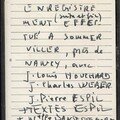 ENREGISTRE
MENT EFFEC
TUÉ A SOMMER
VILLER, près de
NANCY, avec
J. Louis HOUCHARD
J. Charles WEBER
J. Pierre ESPIL
+ TEXTES ESPIL